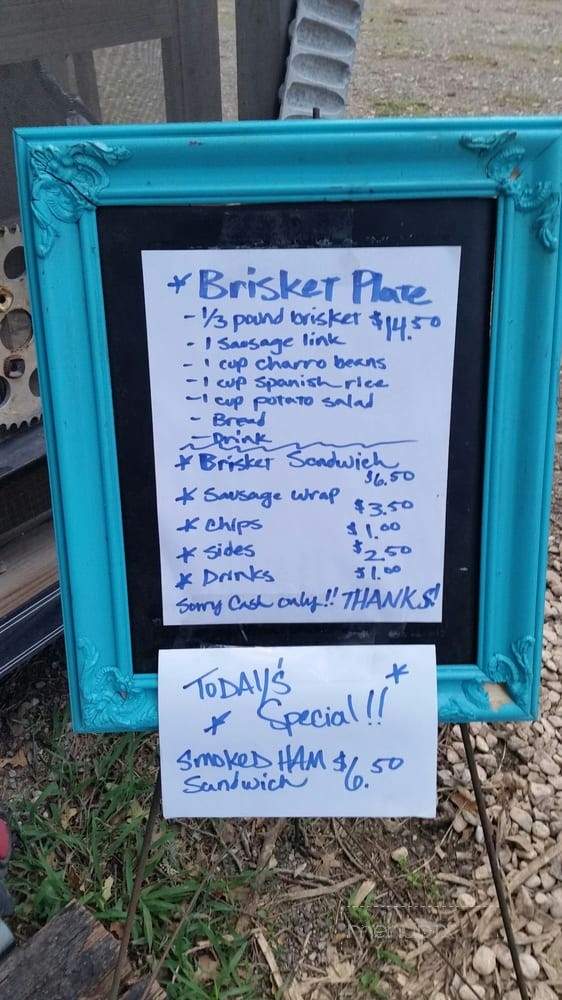 * Brisket Plate
- 1/3 pound brisket $14.50
- 1 sausage link
- 1 cup charro beans
- 1 cup spanish rice
- 1 cup potato salad
- Bread
- Drink
* Brisket Sandwich
$6.50
* Sausage wrap $3.50
* Chips $1.00
* Sides $2.50
* Drinks $1.00
Sorry Cash only!! THANKS!
TODAY'S
* Special!! *
SMOKED HAM $6.50
Sandwich